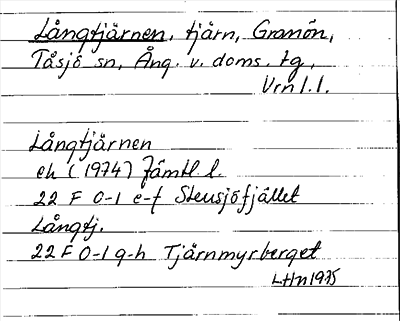 Långtjärnen, tjärn, Granön,
Tåsjö sn, Ång. v. doms. tg,
Vrn l. l.
Långtjärnen
ek (1974) Jämtl. l.
22 F 0-1 e-f Stensjöfjället
Långtj.
22 F 0-1 g-h Tjärnmyrberget
LHn 1975